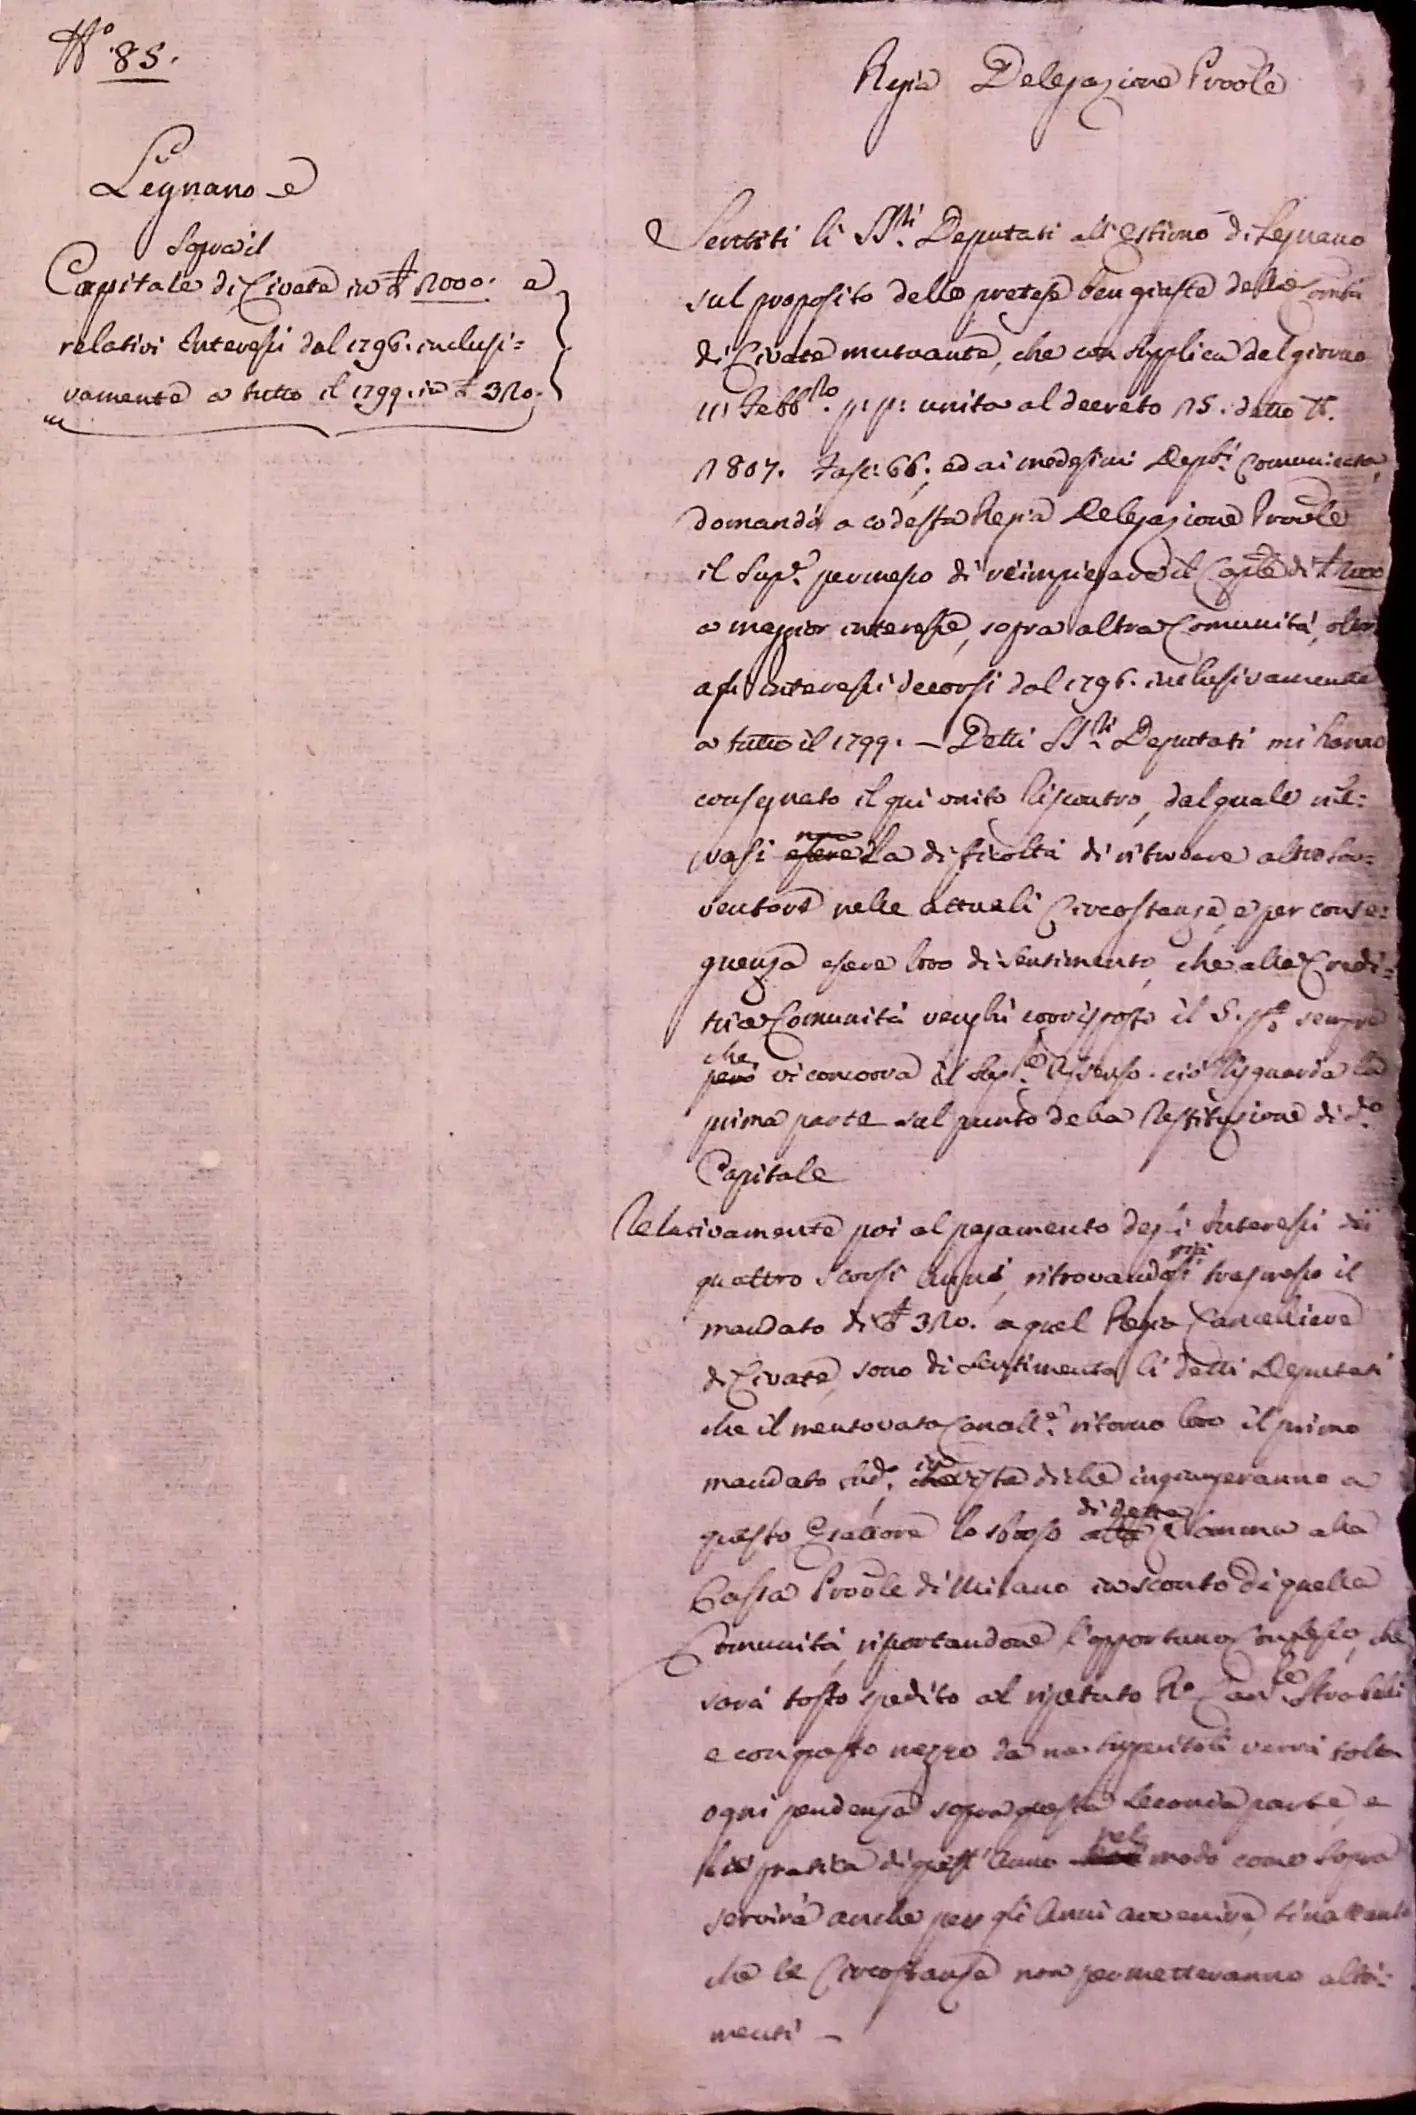 N.° 85.
Regia Delegazione Prov.le
Legnano e
Sopra il
Capitale di Civate in £ 2000. e
relativi Interessi dal 1796. inclusi=
vamente a tutto il 1799. in £ 320.
Sentiti li SS.ri Deputati all'Estimo di Legnano
sul proposito delle pretese ben giuste della Comtà
di Civate mutuante, che con supplica del giorno
11 Febb.ro p. p. unita al decreto 15. detto N.
1807. Fasc. 66, ed ai medesimi Dep.ti Comunicata,
domanda a codesta Regia Delegazione Prov.le
il Sup.e permesso di reimpiegare il Cap.le di £ 2000
a maggior interesse, sopra altra Comunità, oltre
agli interessi decorsi dal 1796. inclusivamente
a tutto il 1799. — Detti SS.ri Deputati mi hanno
consegnato il qui unito Riscontro, dal quale rile=
vasi la dificoltà di ritrovare altro Sov=
ventore nelle attuali Circostanze, e per conse=
guenza essere loro di sentimento, che alla Credi=
trice Comunità venghi corrisposto il 5. p.r % sempre
che vi concorra il Sup.re Assenso. ciò Risguarda la
prima parte sul punto della Restituzione di d.o
Capitale
Relativamente poi al pagamento degli Interessi dei
quattro scorsi Anni, ritrovandosi già trasmesso il
mandato di £ 320. a quel Regio Cancelliere
di Civate, sono di sentimento li detti Deputati
che il mentovato Cancell.e ritorni loro il primo
mandato sud.o in vista di che ingiungeranno a
questo Esattore lo sborso di detta Somma alla
Cassa Prov.le di Milano in sconto di quella
Comunità, riportandone l'opportuno Confesso, che
sarà tosto spedito al ripetuto R.o Can.re
e con questo mezzo da me suggeritoli verrà tolta
ogni pendenza sopra questa seconda parte, e
la pratica di quest'Anno nel modo come sopra
servirà anche per gli Anni avvenire, sinattanto
che le Circostanze non permetteranno altri=
menti —